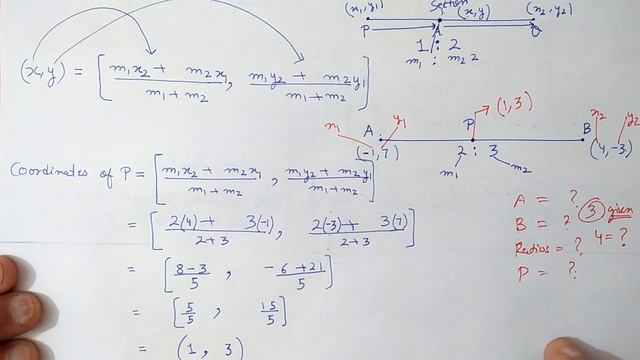 Section
(x₁, y₁) (x, y) (x₂, y₂)
P A Q
1 : 2
m₁ : m₂ 2
(x, y) = [ (m₁x₂ + m₂x₁)/(m₁+m₂) , (m₁y₂ + m₂y₁)/(m₁+m₂) ]
(1, 3)
x₁ y₁ x₂ y₂
A P B
(-1, 7) 2 : 3 (4, -3)
m₁ m₂
Coordinates of P = [ (m₁x₂ + m₂x₁)/(m₁+m₂) , (m₁y₂ + m₂y₁)/(m₁+m₂) ]
= [ (2(4) + 3(-1))/(2+3) , (2(-3) + 3(7))/(2+3) ]
= [ (8-3)/5 , (-6+21)/5 ]
= [ 5/5 , 15/5 ]
= (1, 3)
A = ?
B = ? 3 given
Radius = ? 4 = ?
P = ?